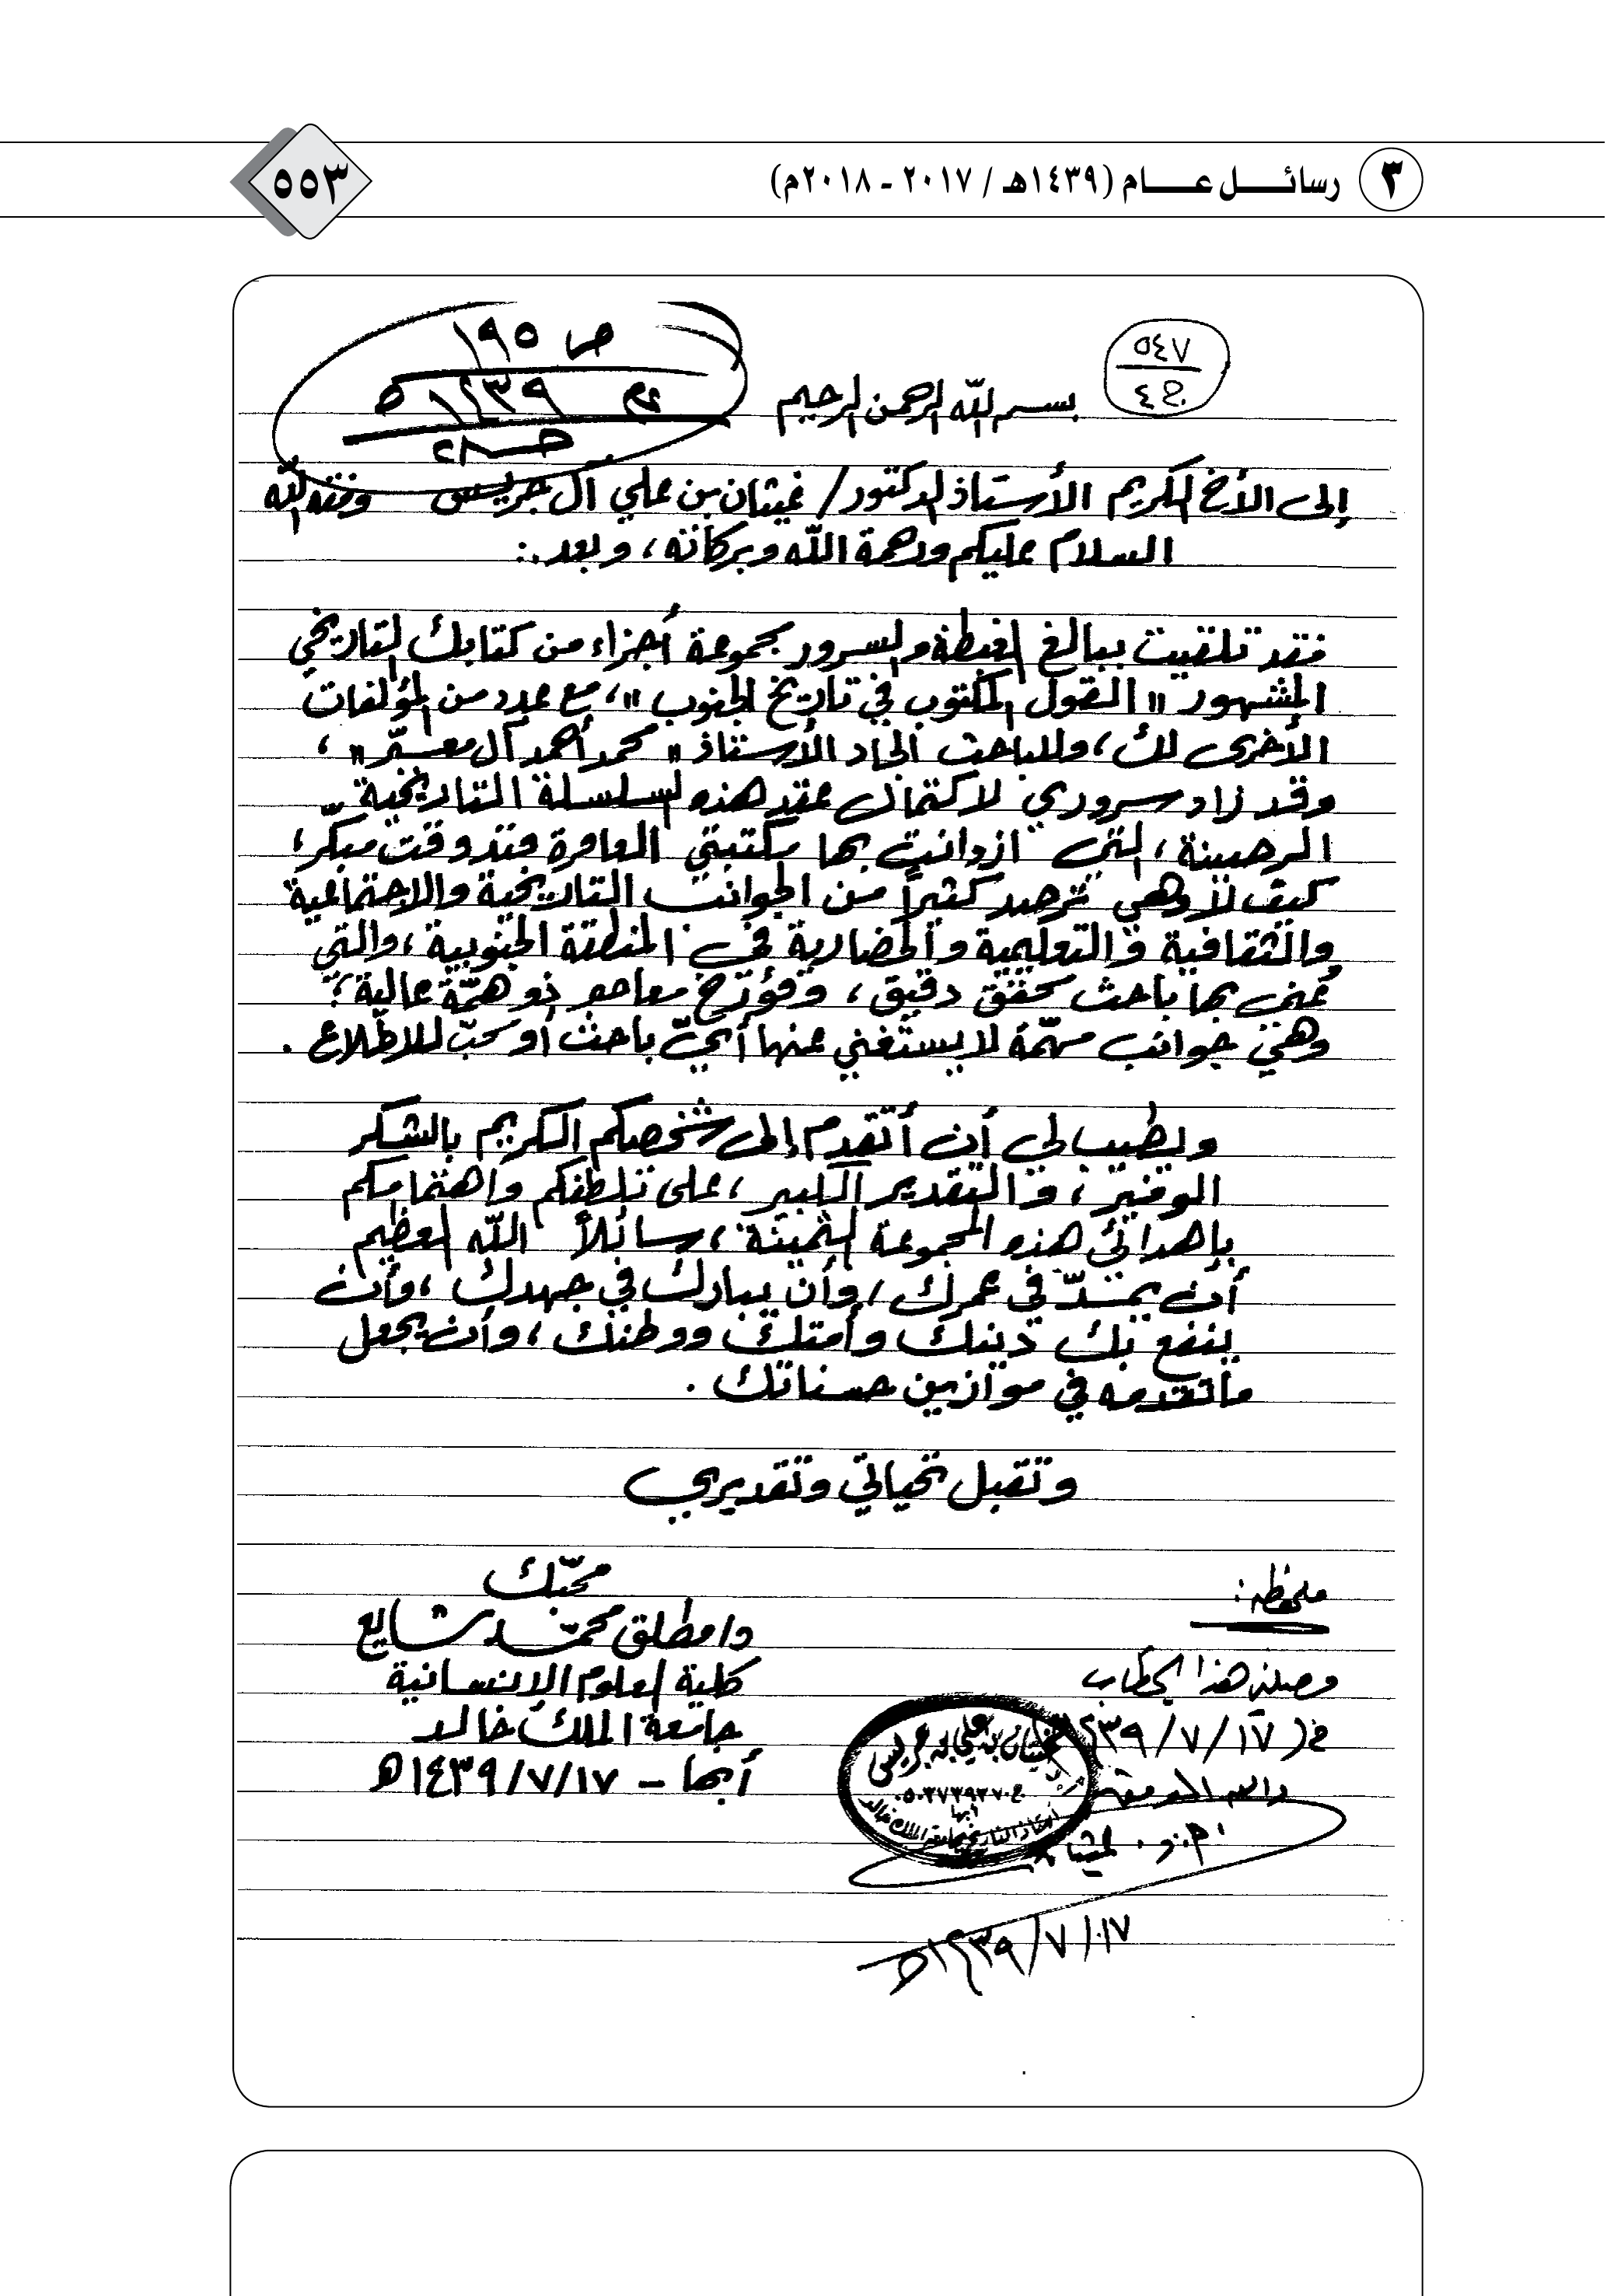 ٣ رسائـــل عـــام (١٤٣٩هـ / ٢٠١٧ - ٢٠١٨م)
٥٥٣
٥٤٧
ج٤
ص ١٩٥
عام ١٤٣٩ه
بسم الله الرحمن الرحيم
إلى الأخ الكريم الأستاذ الدكتور/ غيثان بن علي آل جريس وفقه الله
السلام عليكم ورحمة الله وبركاته، وبعد..:
فقد تلقيت ببالغ الغبطة والسرور مجموعة أجزاء من كتابك التاريخي
المشهور "القول المكتوب في تاريخ الجنوب"، مع عدد من المؤلفات
الأخرى لك، وللباحث الجاد الأستاذ "محمد أحمد آل معبّر"،
وقد زاد سروري لاكتمال عقد هذه السلسلة التاريخية
الرصينة، التي ازدانت بها مكتبتي العامرة منذ وقت مبكّر،
كيف لا وهي ترصد كثيراً من الجوانب التاريخية والاجتماعية
والثقافية والتعليمية والحضارية في المنطقة الجنوبية، والتي
عُني بها باحث محقق دقيق، ومؤرّخ معاصر ذو همّة عالية؛
وهي جوانب مهمّة لا يستغني عنها أيّ باحث أو محبّ للاطّلاع.
ويطيب لي أن أتقدم إلى شخصكم الكريم بالشكر
الوفير، والتقدير الكبير، على تلطفكم واهتمامكم
بإهدائي هذه المجموعة الثمينة، سائلاً الله العظيم
أن يمدّ في عمرك، وأن يبارك في جهدك، وأن
ينفع بك دينك وأمتك ووطنك، وأن يجعل
ما تقدمه في موازين حسناتك.
وتقبل تحياتي وتقديري
محبّك
د/ مطلق محمد شايع
كلية العلوم الإنسانية
جامعة الملك خالد
أبها – ١٤٣٩/٧/١٧ه
ملحوظة:
وصلني هذا الخطاب
في (١٧/٧/١٤٣٩
والله الموفق
أ.د. غيثان
غيثان بن علي بن جريس
أبها
أستاذ التاريخ بجامعة الملك خالد
١٧/٧/١٤٣٩ه